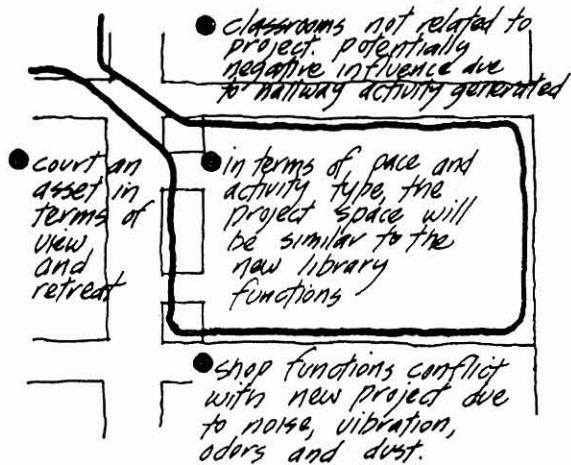 classrooms not related to
project. potentially
negative influence due
to hallway activity generated
court an
asset in
terms of
view
and
retreat
in terms of pace and
activity type, the
project space will
be similar to the
new library
functions
shop functions conflict
with new project due
to noise, vibration,
odors and dust.